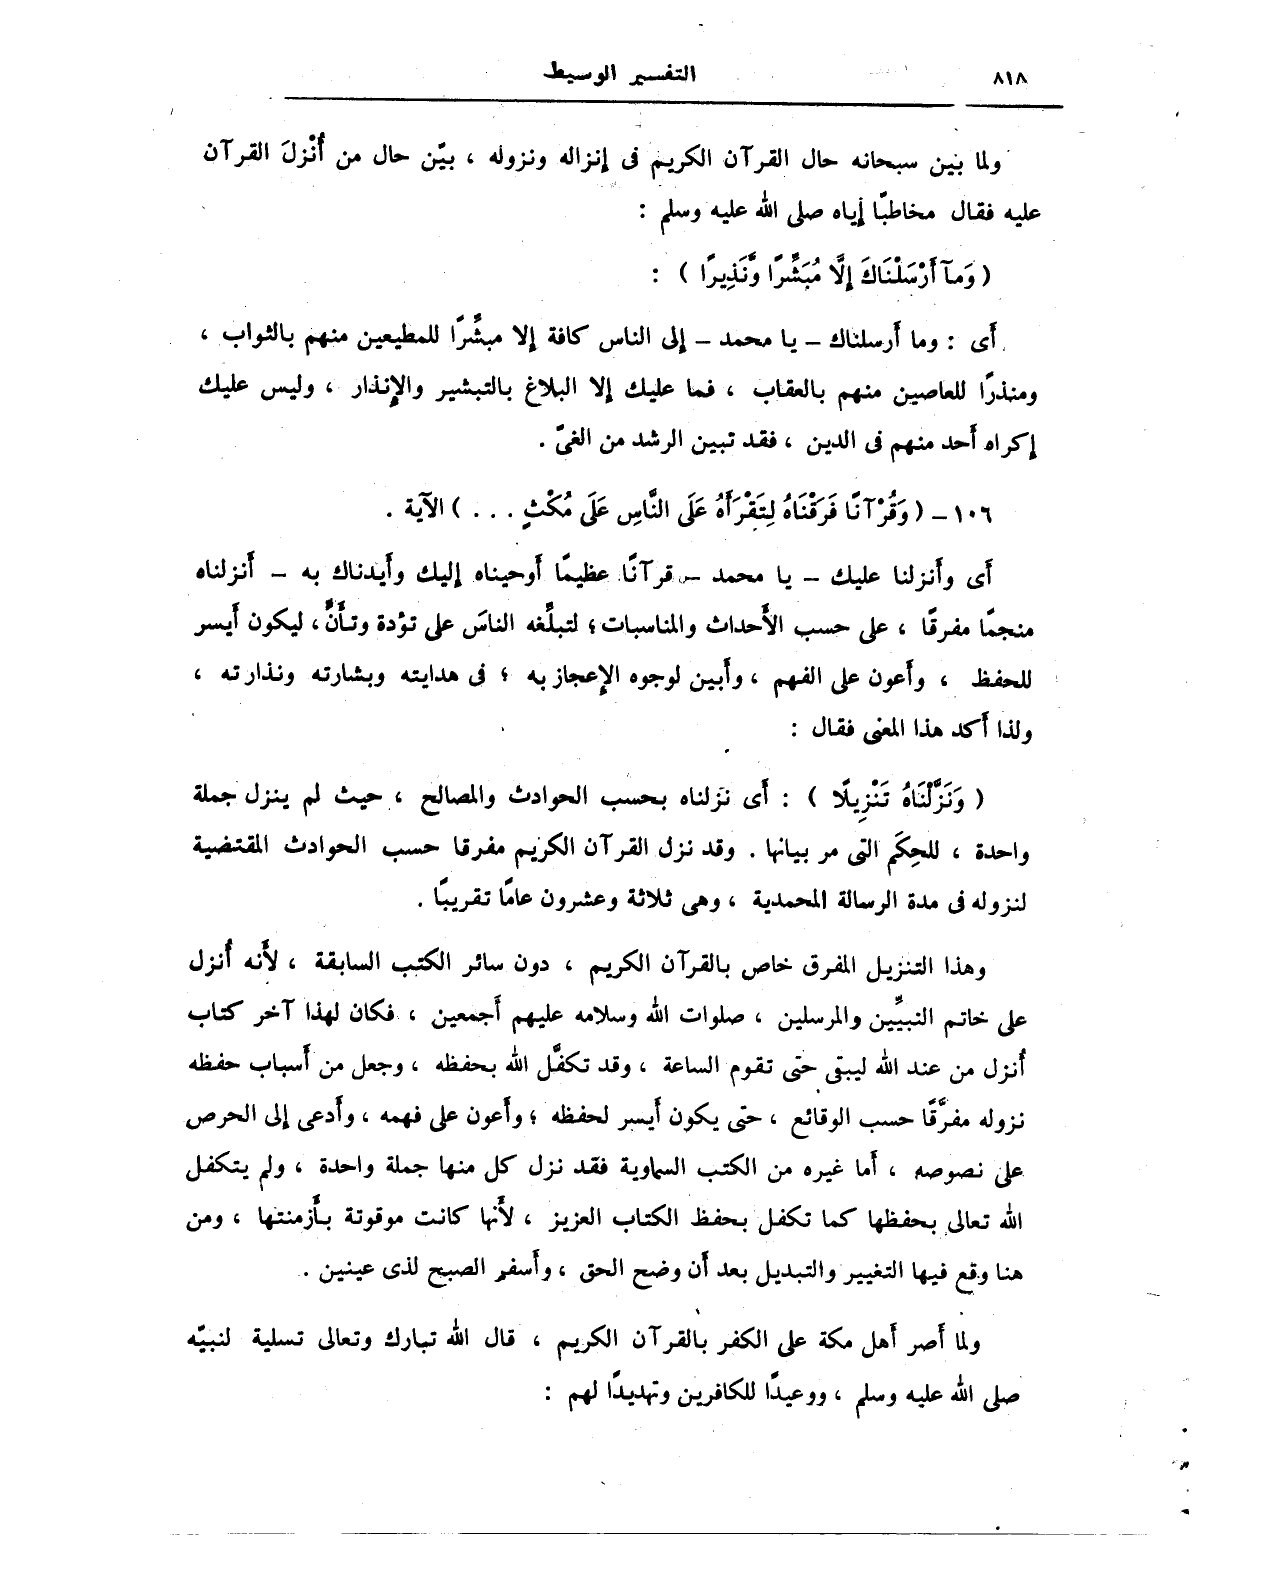 ٨١٨
التفسير الوسيط
ولما بين سبحانه حال القرآن الكريم فى إنزاله ونزوله ، بيّن حال من أُنْزلَ القرآن
عليه فقال مخاطبًا إياه صلى الله عليه وسلم :
( وَمَآ أَرْسَلْنَاكَ إِلَّا مُبَشِّرًا وَّنَذِيرًا ) :
أى : وما أرسلناك – يا محمد – إلى الناس كافة إلا مبشِّرًا للمطيعين منهم بالثواب ،
ومنذرًا للعاصين منهم بالعقاب ، فما عليك إلا البلاغ بالتبشير والإنذار ، وليس عليك
إكراه أحد منهم فى الدين ، فقد تبين الرشد من الغىّ .
١٠٦ – ( وَقُرْآنًا فَرَقْنَاهُ لِتَقْرَأَهُ عَلَى النَّاسِ عَلَى مُكْثٍ . . . ) الآية .
أى وأنزلنا عليك – يا محمد – قرآنًا عظيمًا أوحيناه إليك وأيدناك به – أنزلناه
منجمًا مفرقًا ، على حسب الأحداث والمناسبات ؛ لتبلِّغه الناسَ على تؤدة وتأنٍّ ، ليكون أيسر
للحفظ ، وأعون على الفهم ، وأبين لوجوه الإعجاز به ؛ فى هدايته وبشارته ونذارته ،
ولذا أكد هذا المعنى فقال :
( وَنَزَّلْنَاهُ تَنْزِيلًا ) : أى نزلناه بحسب الحوادث والمصالح ، حيث لم ينزل جملة
واحدة ، للحِكَم التى مر بيانها . وقد نزل القرآن الكريم مفرقا حسب الحوادث المقتضية
لنزوله فى مدة الرسالة المحمدية ، وهى ثلاثة وعشرون عامًا تقريبًا .
وهذا التنزيل المفرق خاص بالقرآن الكريم ، دون سائر الكتب السابقة ، لأنه أُنزل
على خاتم النبيِّين والمرسلين ، صلوات الله وسلامه عليهم أجمعين ، فكان لهذا آخر كتاب
أُنزل من عند الله ليبقى حتى تقوم الساعة ، وقد تكفَّل الله بحفظه ، وجعل من أسباب حفظه
نزوله مفرَّقًا حسب الوقائع ، حتى يكون أيسر لحفظه ؛ وأعون على فهمه ، وأدعى إلى الحرص
على نصوصه ، أما غيره من الكتب السماوية فقد نزل كل منها جملة واحدة ، ولم يتكفل
الله تعالى بحفظها كما تكفل بحفظ الكتاب العزيز ، لأنها كانت موقوتة بأزمنتها ، ومن
هنا وقع فيها التغيير والتبديل بعد أن وضح الحق ، وأسفر الصبح لذى عينين .
ولما أصر أهل مكة على الكفر بالقرآن الكريم ، قال الله تبارك وتعالى تسلية لنبيّه
صلى الله عليه وسلم ، ووعيدًا للكافرين وتهديدًا لهم :